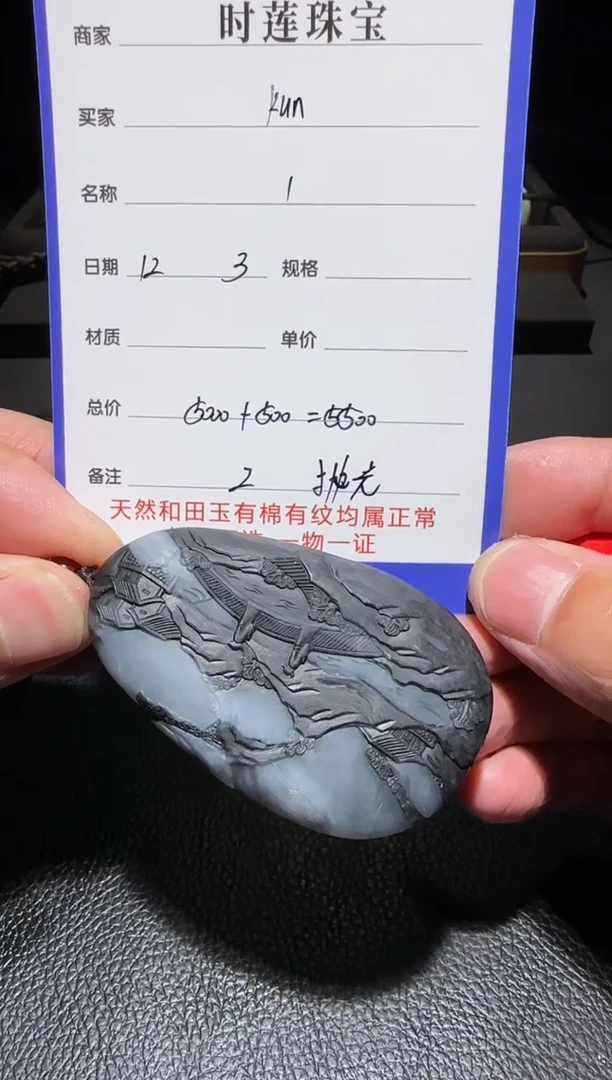 商家 时莲珠宝
买家 kun
名称 1
日期 12 3 规格
材质 单价
总价 5000+500=5500
备注 2 抛光
天然和田玉有棉有纹均属正常
一物一证